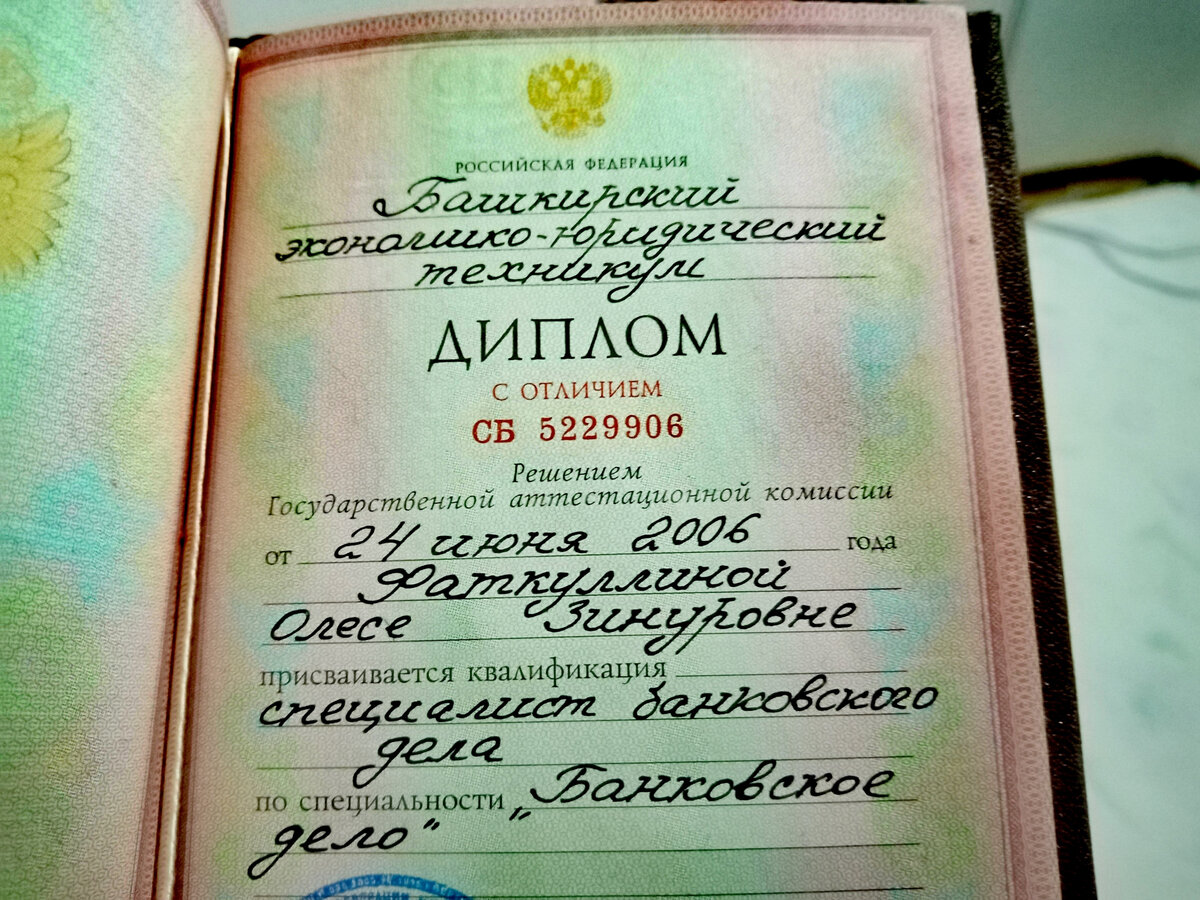 РОССИЙСКАЯ ФЕДЕРАЦИЯ
Башкирский
экономико-юридический
техникум
ДИПЛОМ
С ОТЛИЧИЕМ
СБ 5229906
Решением
Государственной аттестационной комиссии
от 24 июня 2006 года
Фаткуллиной
Олесе Зинуровне
присваивается квалификация
специалист банковского
дела
по специальности „Банковское
дело“